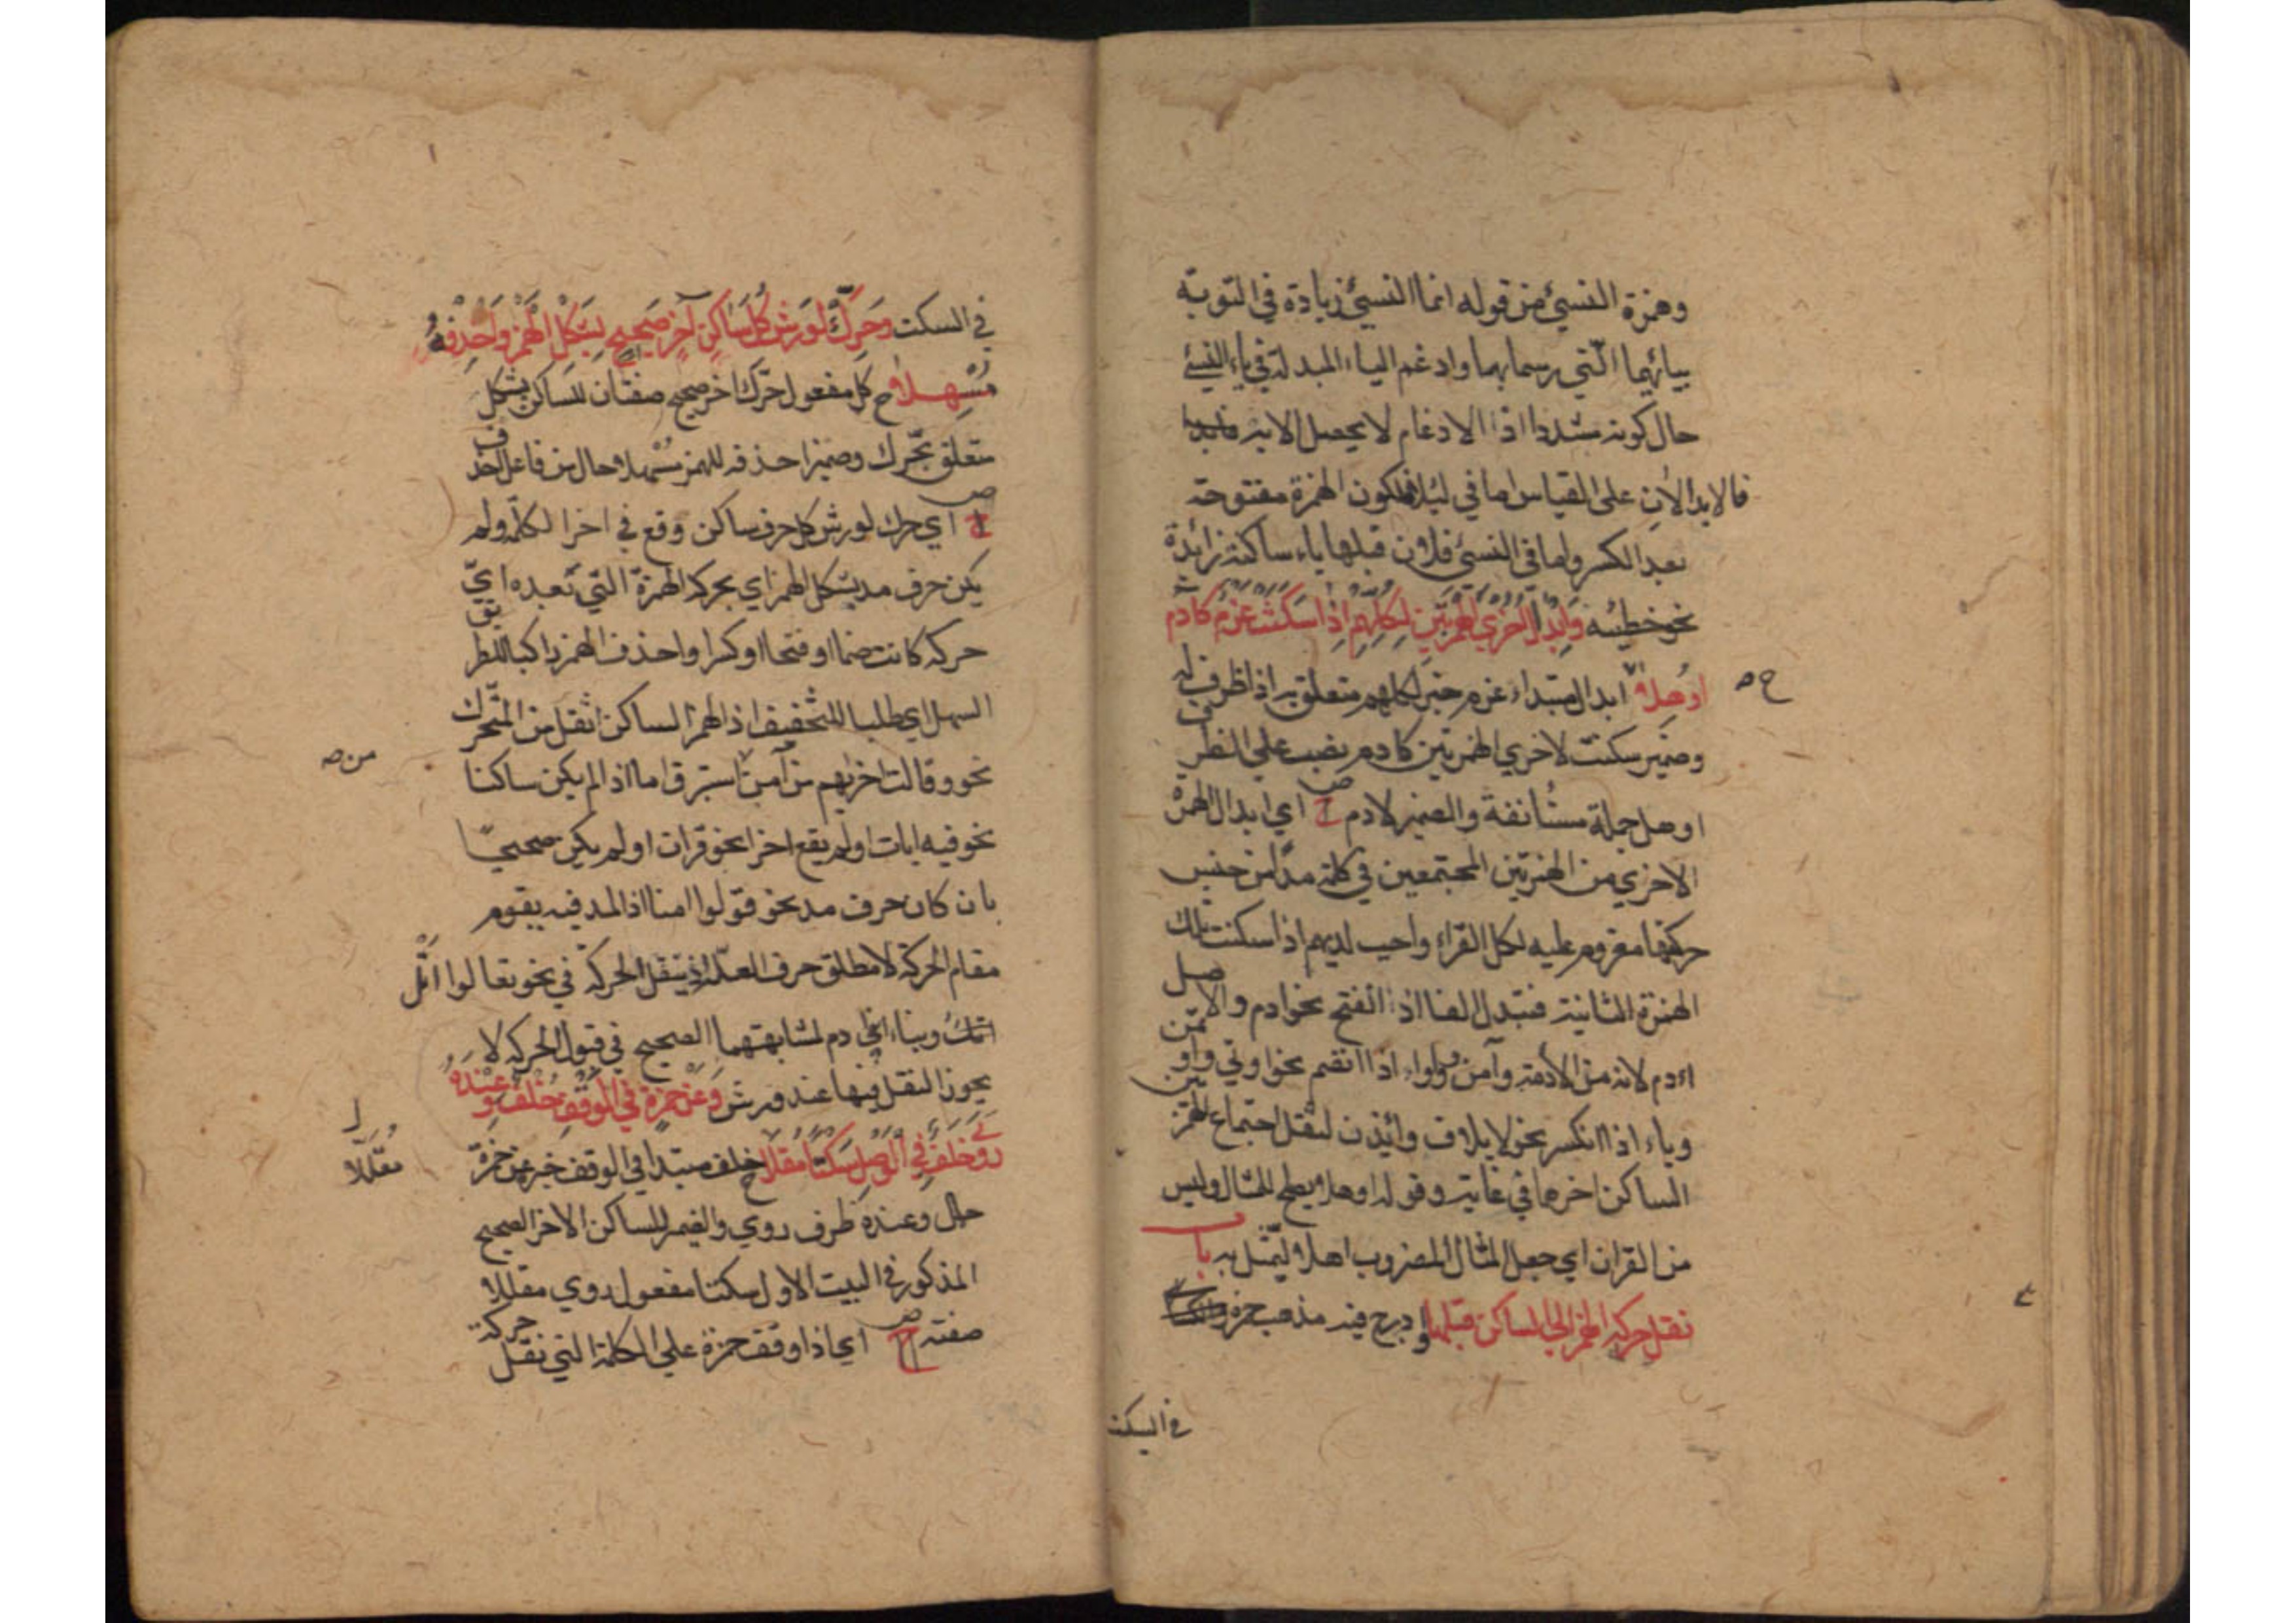 وهمزة النسيئ من قوله انما النسيئ زيادة في التوبة
بيائهما الّتي رسما بهما وادغم الياء المبدلة في ياء النسيئ
حال كونه مشددا اذا الادغام لا يحصل الا به
فالابدالان على القياس اما في لئلا فلكون الهمزة مفتوحة
بعد الكسر واما في النسيئ فلان قبلها ياء ساكنة زائدة
نحو خطيئة وَابدالُ اُخرَي الهمزتَينِ لِكلِّهِم اِذا سَكَنَت عَزمٌ كَآدم
اُوهِلا ابدال مبتداء عزم خبر لكلهم متعلق به اذا ظرف له
وضمير سكنت لاخري الهمزتين كادم نصب علي الظرف
اوهل جملة مستانفة والضمير لادم ح ص اي ابدال الهمزة
الاخري من الهمزتين المجتمعين في كلمة مدا من جنس
حركتها معزوم عليه لكل القراء واجب لديهم اذا سكنت تلك
الهمزة الثانية فتبدل الفا اذا انفتح نحو ادم والاصل
اءدم لانه من الأدمة وآمن وواوا اذا انضم نحو اوتي واوتمن
وياء اذا انكسر نحو لايلاف وائذن لثقل اجتماع الهمزتين
الساكن اخرها في غايته وقوله اوهلا يصلح للمثال وليس
من القران اي جعل المثال المضروب اهلا ليمثل به باب
نقل حركة الهمزة الي الساكن قبلها وادرج فيه مذهب حمزة
في السكت
في السكت وَحَرِّكْ لِورشٍ كُلَّ سَاكِنِ آخِرٍ صَحيحٍ بِشَكْلِ الْهَمْزِ واحْذِفْهُ
مُسْهِلا ح كل مفعول حرك اخر صحيح صفتان للساكن بشكل
متعلق بحرك وضمير احذفه للهمز مسهلا حال من فاعل احذف
ح ص اي حرك لورش كل حرف ساكن وقع في اخر الكلمة ولم
يكن حرف مد بشكل الهمز اي بحركة الهمزة التي بعده اي
حركة كانت ضما او فتحا او كسرا واحذف الهمز راكبا للطريق
السهل اي طلبا للتخفيف اذ الهمز الساكن اثقل من المتحرك
نحو وقالت اخريهم من آمن من استبرق اما اذا لم يكن ساكنا
من ص
نحو فيه ايات او لم يقع اخرا نحو قران او لم يكن صحيحا
بان كان حرف مد نحو قولوا امنا اذ المد فيه يقوم
مقام الحركة لا مطلق حرف العلة اذ ينقل الحركة في نحو تعالوا اتل
ادم لمشابهتهما الصحيح في قبول الحركة لا
يجوز النقل فيها عند ورش وَعَن حَمْزَةٍ في الوَقْفِ خُلْفٌ وَعِنْدَهُ
رَوَي خَلَفٌ في الوَصْلِ سَكْتًا مُقَلَّلا ح خلف مبتدا في الوقف خبر عن حمزة
مُقَلَّلا
حال وعنده ظرف روي والضمير للساكن الاخر الصحيح
المذكور في البيت الاول سكتا مفعول روي مقللا
صفته ح ص اي اذا وقف حمزة علي الكلمة التي نقل حركة